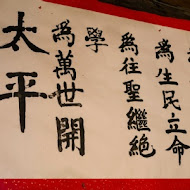 為生民立命
為往聖繼絕
學
為萬世開
太平